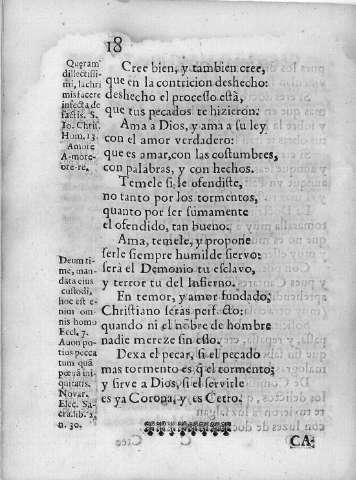 18
Cree bien, y tambien cree,
que en la contricion deshecho:
deshecho el processo està,
que tus pecados te hizieron.
Ama a Dios, y ama a su ley
con el amor verdadero:
que es amar, con las costumbres,
con palabras, y con hechos.
Temele si le ofendiste,
no tanto por los tormentos,
quanto por ser sumamente
el ofendido, tan bueno.
Ama, temele, y propone
serle siempre humilde siervo:
serà el Demonio tu esclavo,
y terror tu del Infierno.
En temor, y amor fundado,
Christiano seràs perfecto:
quando ni el nōbre de hombre
nadie mereze sin esso.
Dexa el pecar, si el pecado
mas tormento es q̄ el tormento;
y sirve a Dios, si el servirle
es ya Corona, y es Cetro.
CA-
dillectissi-
mi, lachri
mis facere
infecta de
factis. S.
Io. Chris.
Hom. 13.
Amore
A-more-
ore-re,
Deum ti-
me, man-
data eius
custodi,
hoc est e-
nim om-
nis homo
Eccl. 7.
potius pecca
tum quā
quitatis.
Novar.
Elec. Sa-
cra. lib. 2,
n. 30.